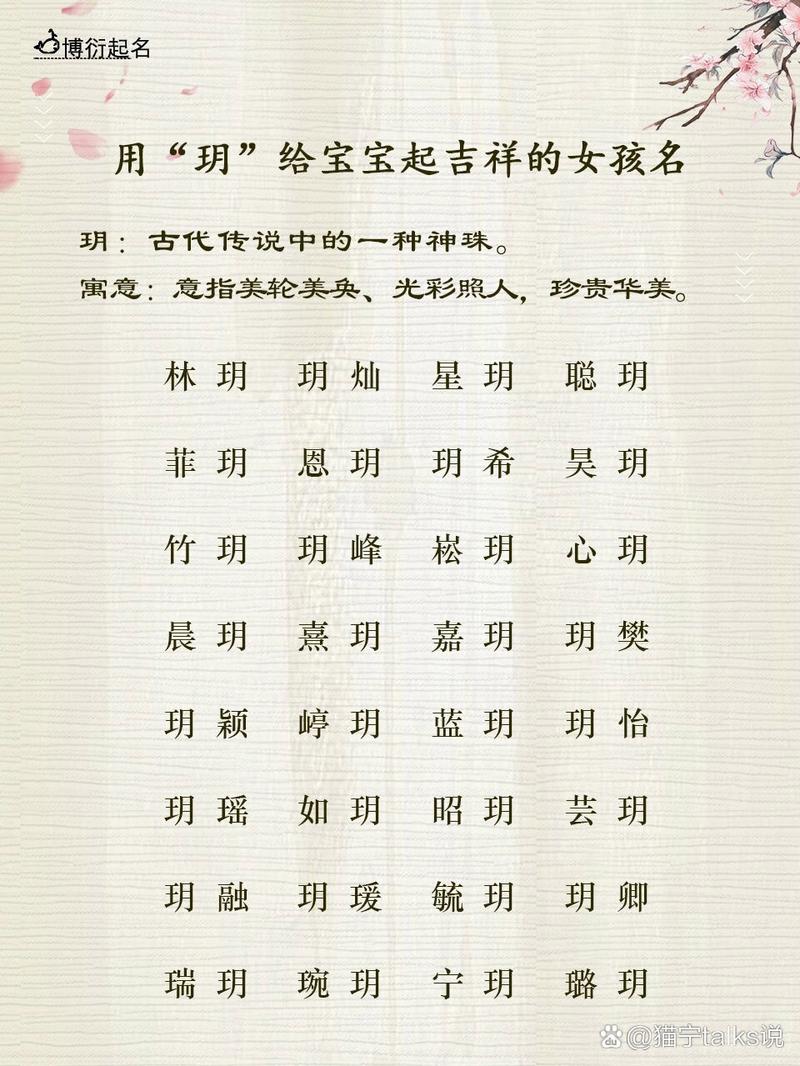 博衍起名
用“玥”给宝宝起吉祥的女孩名
玥：古代传说中的一种神珠。
寓意：意指美轮美奂、光彩照人，珍贵华美。
林玥 玥灿 星玥 聪玥
菲玥 恩玥 玥希 昊玥
竹玥 玥峰 崧玥 心玥
晨玥 熹玥 嘉玥 玥樊
玥颖 崞玥 蓝玥 玥怡
玥瑶 如玥 昭玥 芸玥
玥融 玥瑗 毓玥 玥卿
瑞玥 琬玥 宁玥 璐玥
@猫宁talks说